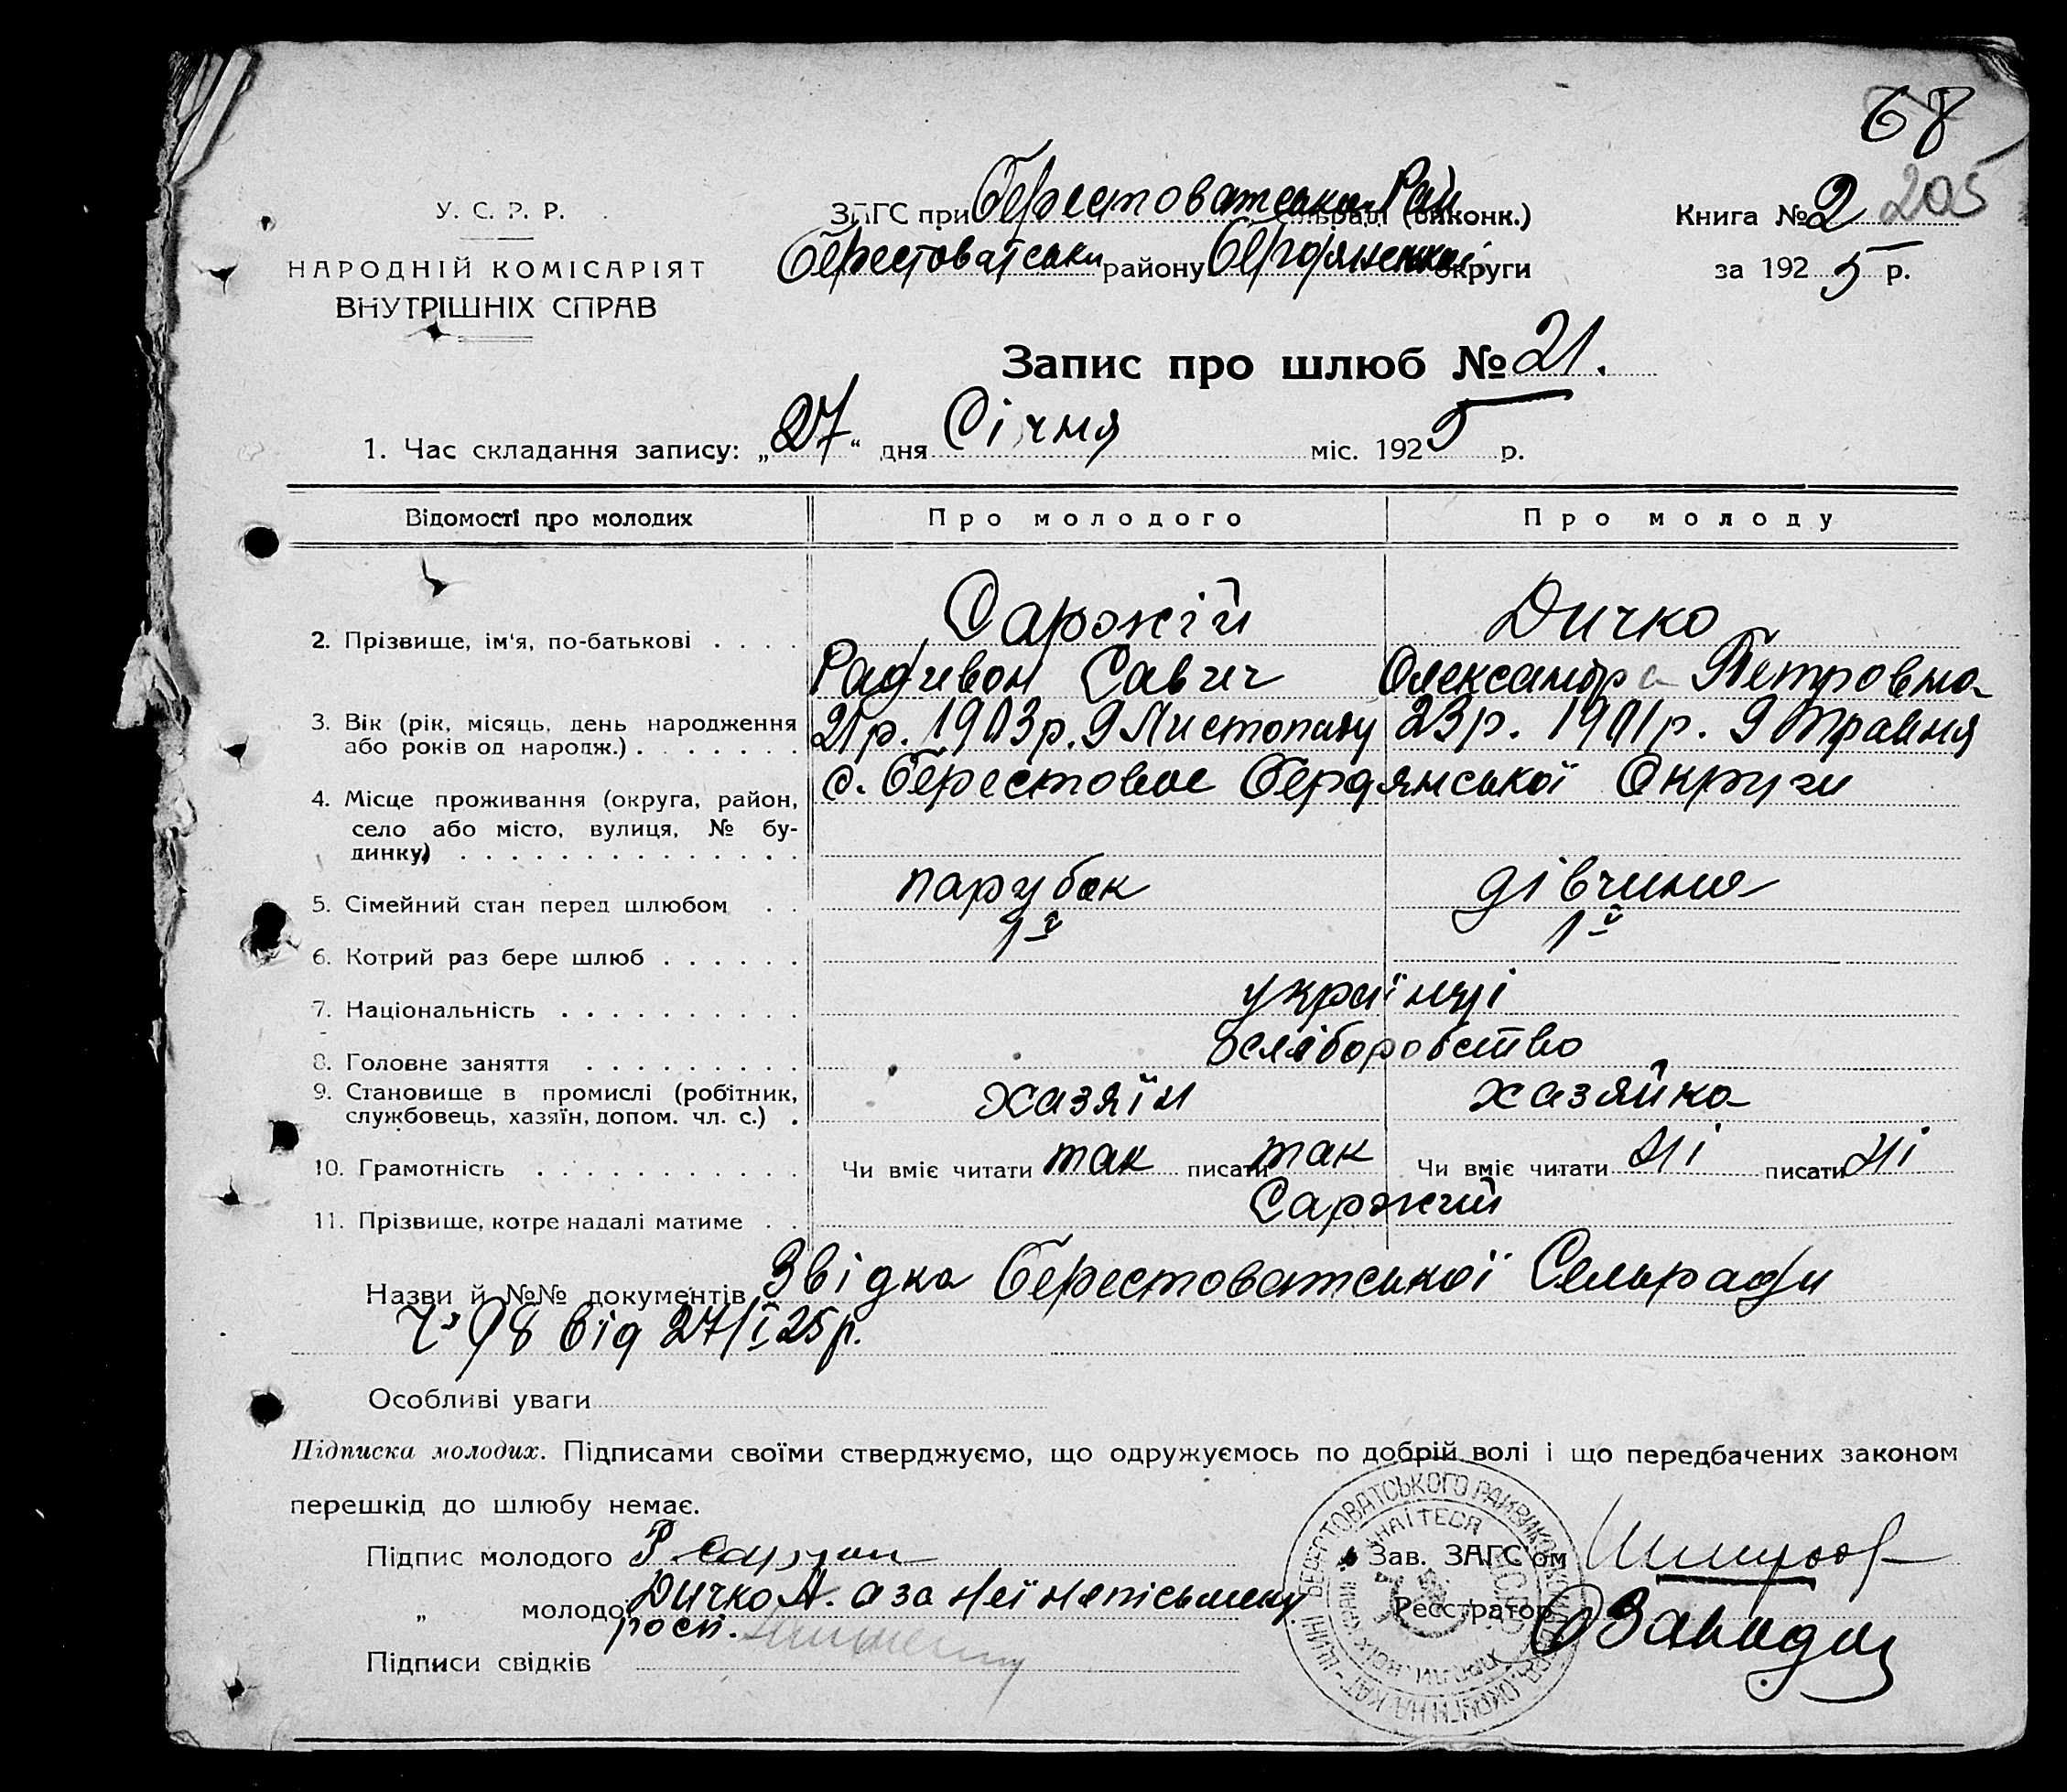 68
205
У. С. Р. Р.
НАРОДНІЙ КОМІСАРІЯТ
ВНУТРІШНІХ СПРАВ
ЗАГС при Берестоватськи Рай сільраді (виконк.)
Берестоватськи району Бердянської округи
Книга № 2
за 1925 р.
Запис про шлюб № 21.
1. Час складання запису: „27“ дня Січня міс. 1925 р.
Відомості про молодих Про молодого Про молоду
Саржій Дичко
2. Прізвище, ім'я, по-батькові
Радивон Савич Олександра Петровна
3. Вік (рік, місяць, день народження 21 р. 1903 р. 9 Листопаду 23 р. 1901 р. 9 травня
або років од народж.)
4. Місце проживання (округа, район, с. Берестовое Бердянської Округи
село або місто, вулиця, № бу-
динку)
5. Сімейний стан перед шлюбом парубок дівчина
6. Котрий раз бере шлюб 1й 1й
7. Національність українці
8. Головне заняття хліборобство
9. Становище в промислі (робітник, хазяїн хазяйка
службовець, хазяїн, допом. чл. с.)
10. Грамотність Чи вміє читати так писати так Чи вміє читати ні писати ні
11. Прізвище, котре надалі матиме Саржий
Назви й №№ документів Звідка Берестоватської Сельради
98 від 27/I 25 р.
Особливі уваги
Підписка молодих. Підписами своїми стверджуємо, що одружуємось по добрій волі і що передбачених законом
перешкід до шлюбу немає.
Підпис молодого Р Зав. ЗАГС'ом
„ молодої Дичко А. а за неї непісьмену Реєстратор
росп.
Підписи свідків
БЕРЕСТОВАТСЬКОГО РАЙВИКОНКОМ
ЄДНАЙТЕСЯ